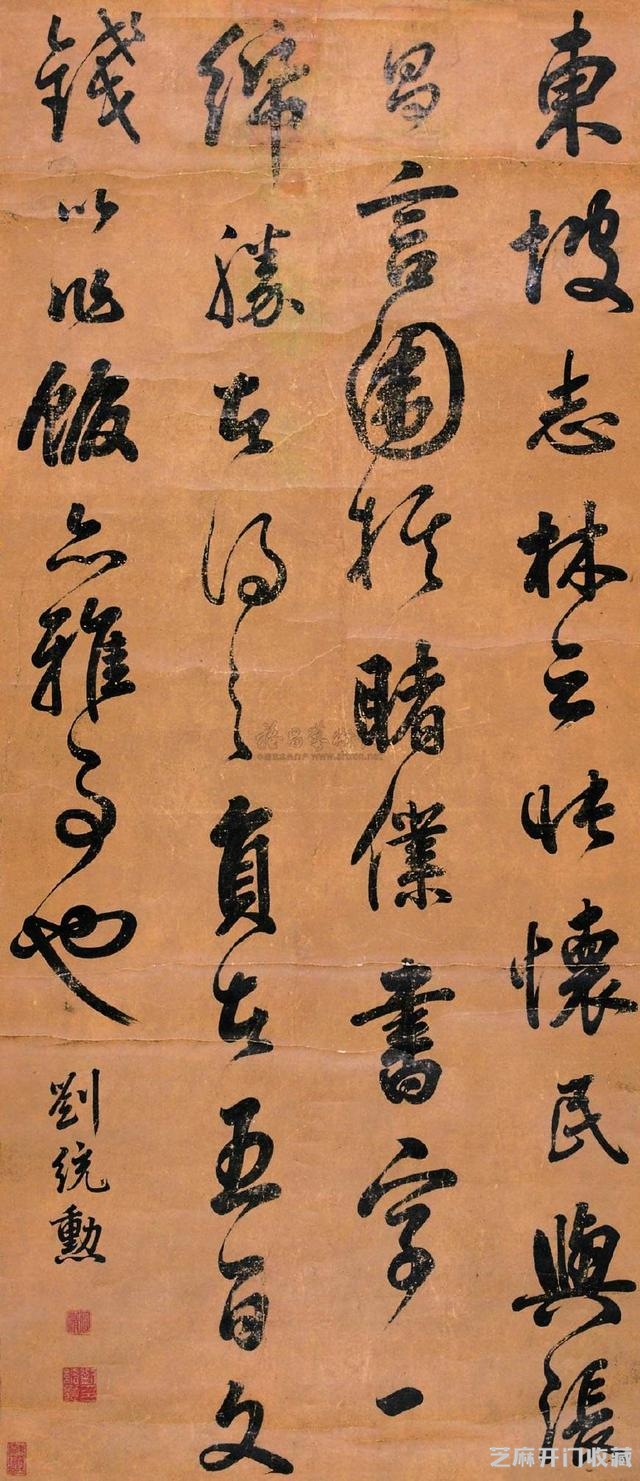 東坡志林云張懷民與張
昌言圍棋賭僕書字一
紙勝者得之負者五百文
錢以作飯亦雅事也
劉統勳
芝麻开门收藏